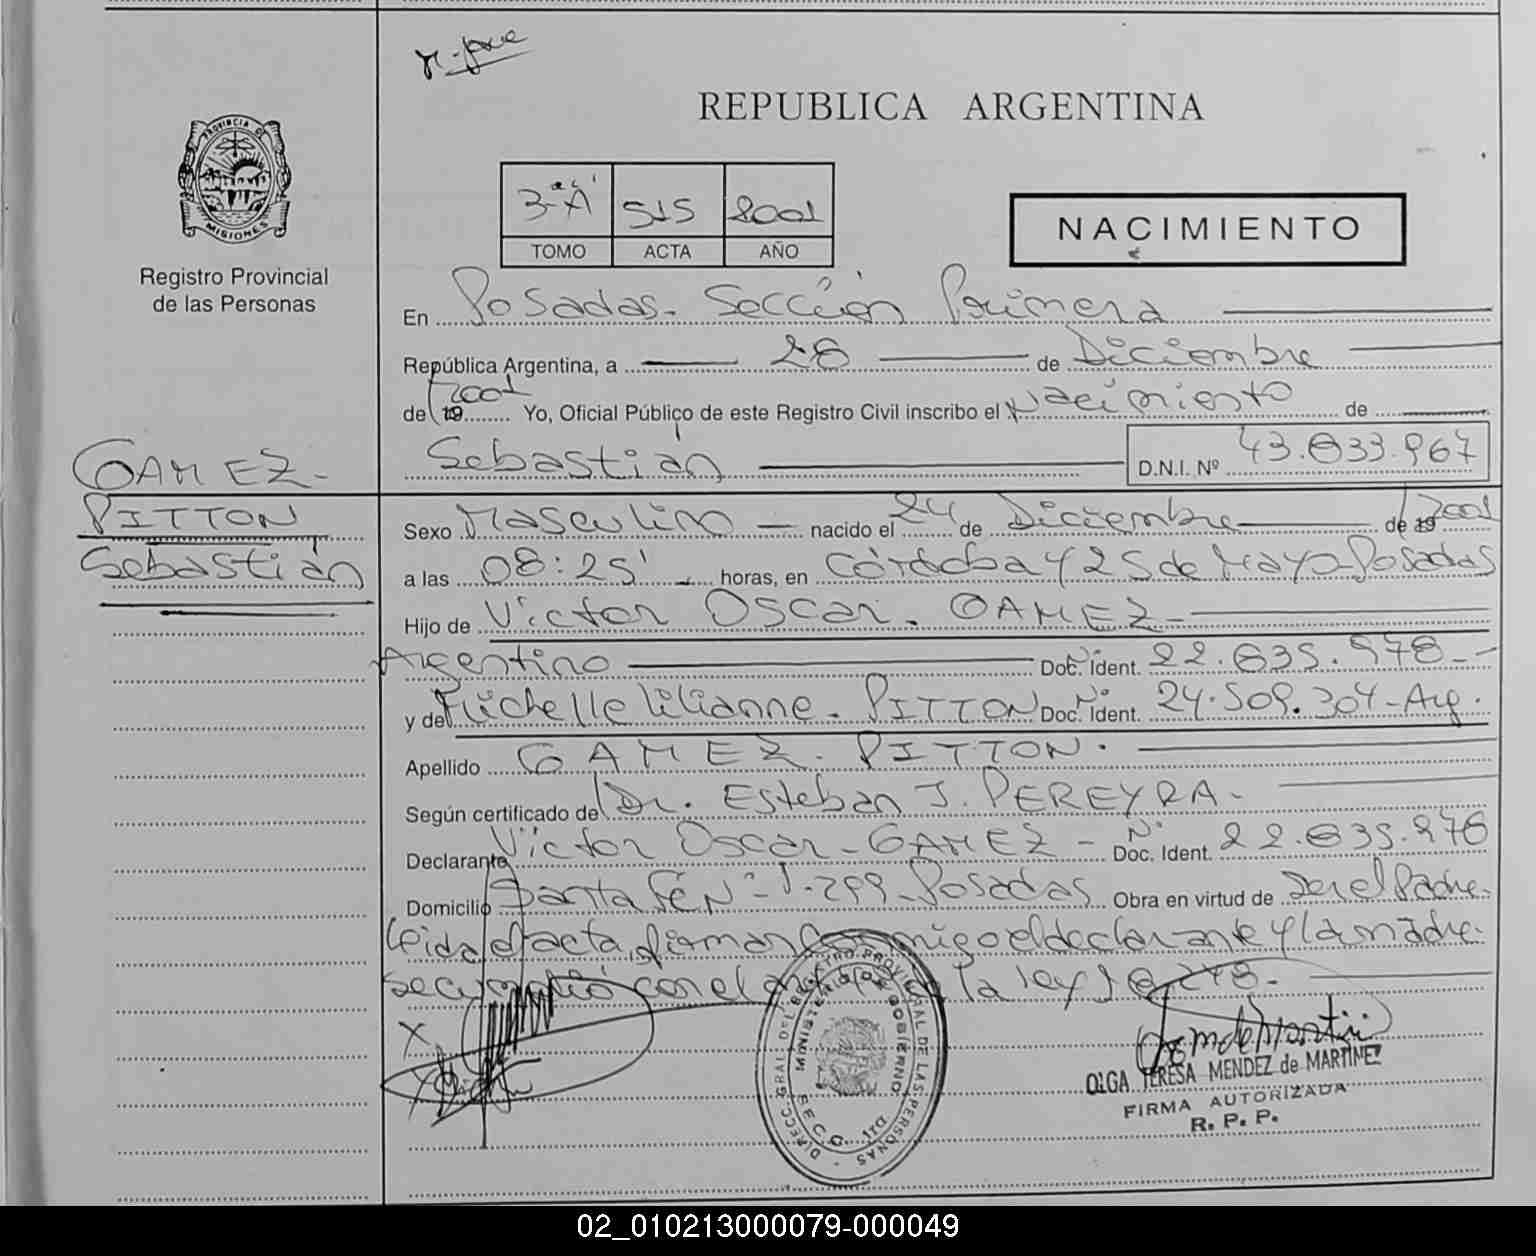 REPUBLICA ARGENTINA
PROVINCIA DE MISIONES
Registro Provincial
de las Personas
3ª "A" 515 2001
TOMO ACTA AÑO
NACIMIENTO
En Posadas. Sección Primera
República Argentina, a 28 de Diciembre
de 19 2001 Yo, Oficial Público de este Registro Civil inscribo el Nacimiento de
Sebastián D.N.I. Nº 43.833.967
GAMEZ-
PITTON
Sebastián
Sexo Masculino nacido el 24 de Diciembre de 19 2001
a las 08:25' horas, en Córdoba y 25 de Mayo-Posadas
Hijo de Victor Oscar. GAMEZ-
Argentino Doc. Ident. Nº 22.835.978-
y de Michelle lilianne. PITTON Doc. Ident. Nº 24.509.304-Arg.
Apellido GAMEZ. PITTON.
Según certificado de Dr. Esteban J. PEREYRA-
Declarante Victor Oscar-GAMEZ- Doc. Ident. Nº 22.835.978
Domicilio Santa Fé Nº 1.299-Posadas Obra en virtud de Ser el Padre-
leida el acta, firman conmigo el declarante y la madre-
se cumplió con el la ley
DIRECC. GRAL. DEL REGISTRO PROVINCIAL DE LAS PERSONAS
MINISTERIO DE GOBIERNO
OLGA TERESA MENDEZ de MARTINEZ
FIRMA AUTORIZADA
R. P. P.
02_010213000079-000049